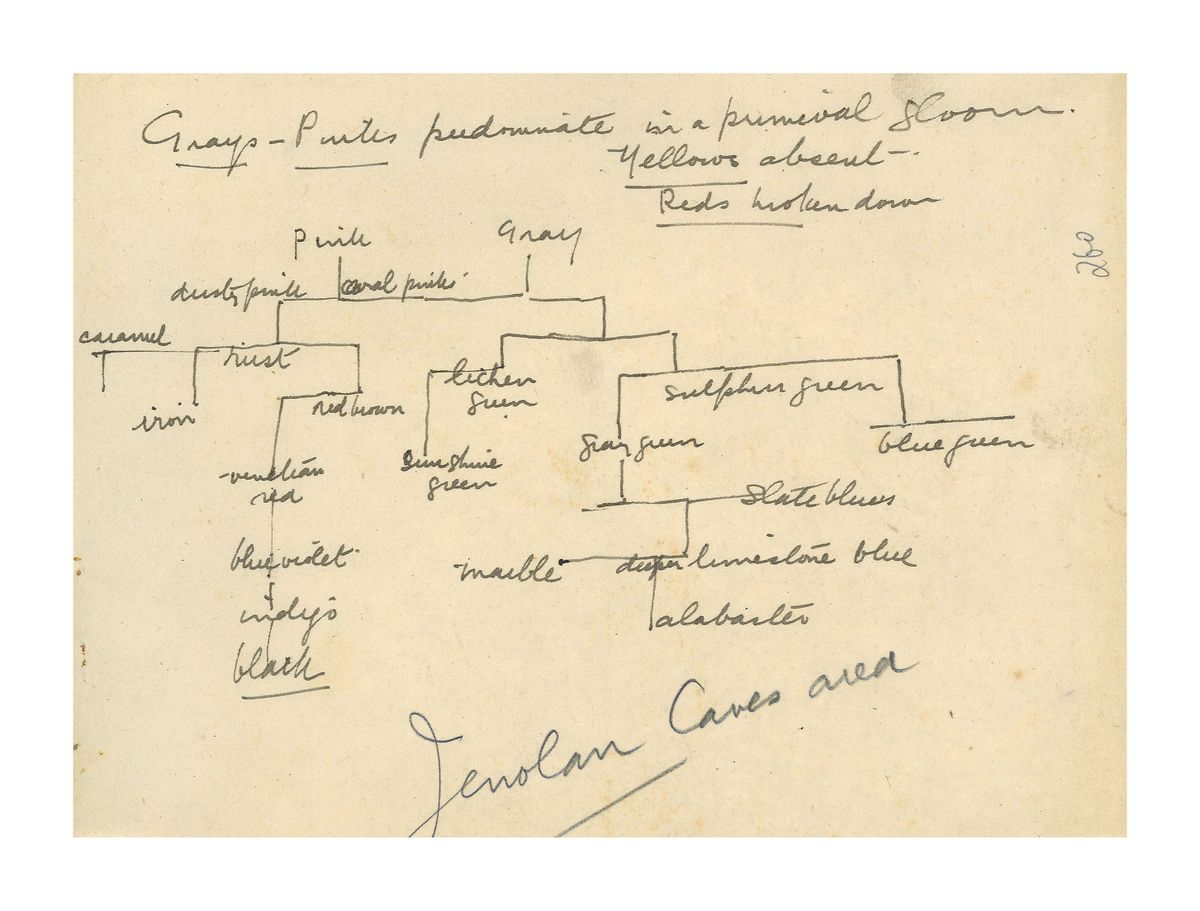 Grays – Pinks predominate in a primeval gloom.
Yellows absent –
Reds broken down
260
Pink Gray
dusty pink coral pinks
caramel
rust
iron
red brown
lichen
green
sulphur green
gray green
blue green
venetian
red
sunshine
green
slate blues
blue violet
marble deeper limestone blue
indigo
alabaster
black
Jenolan Caves area